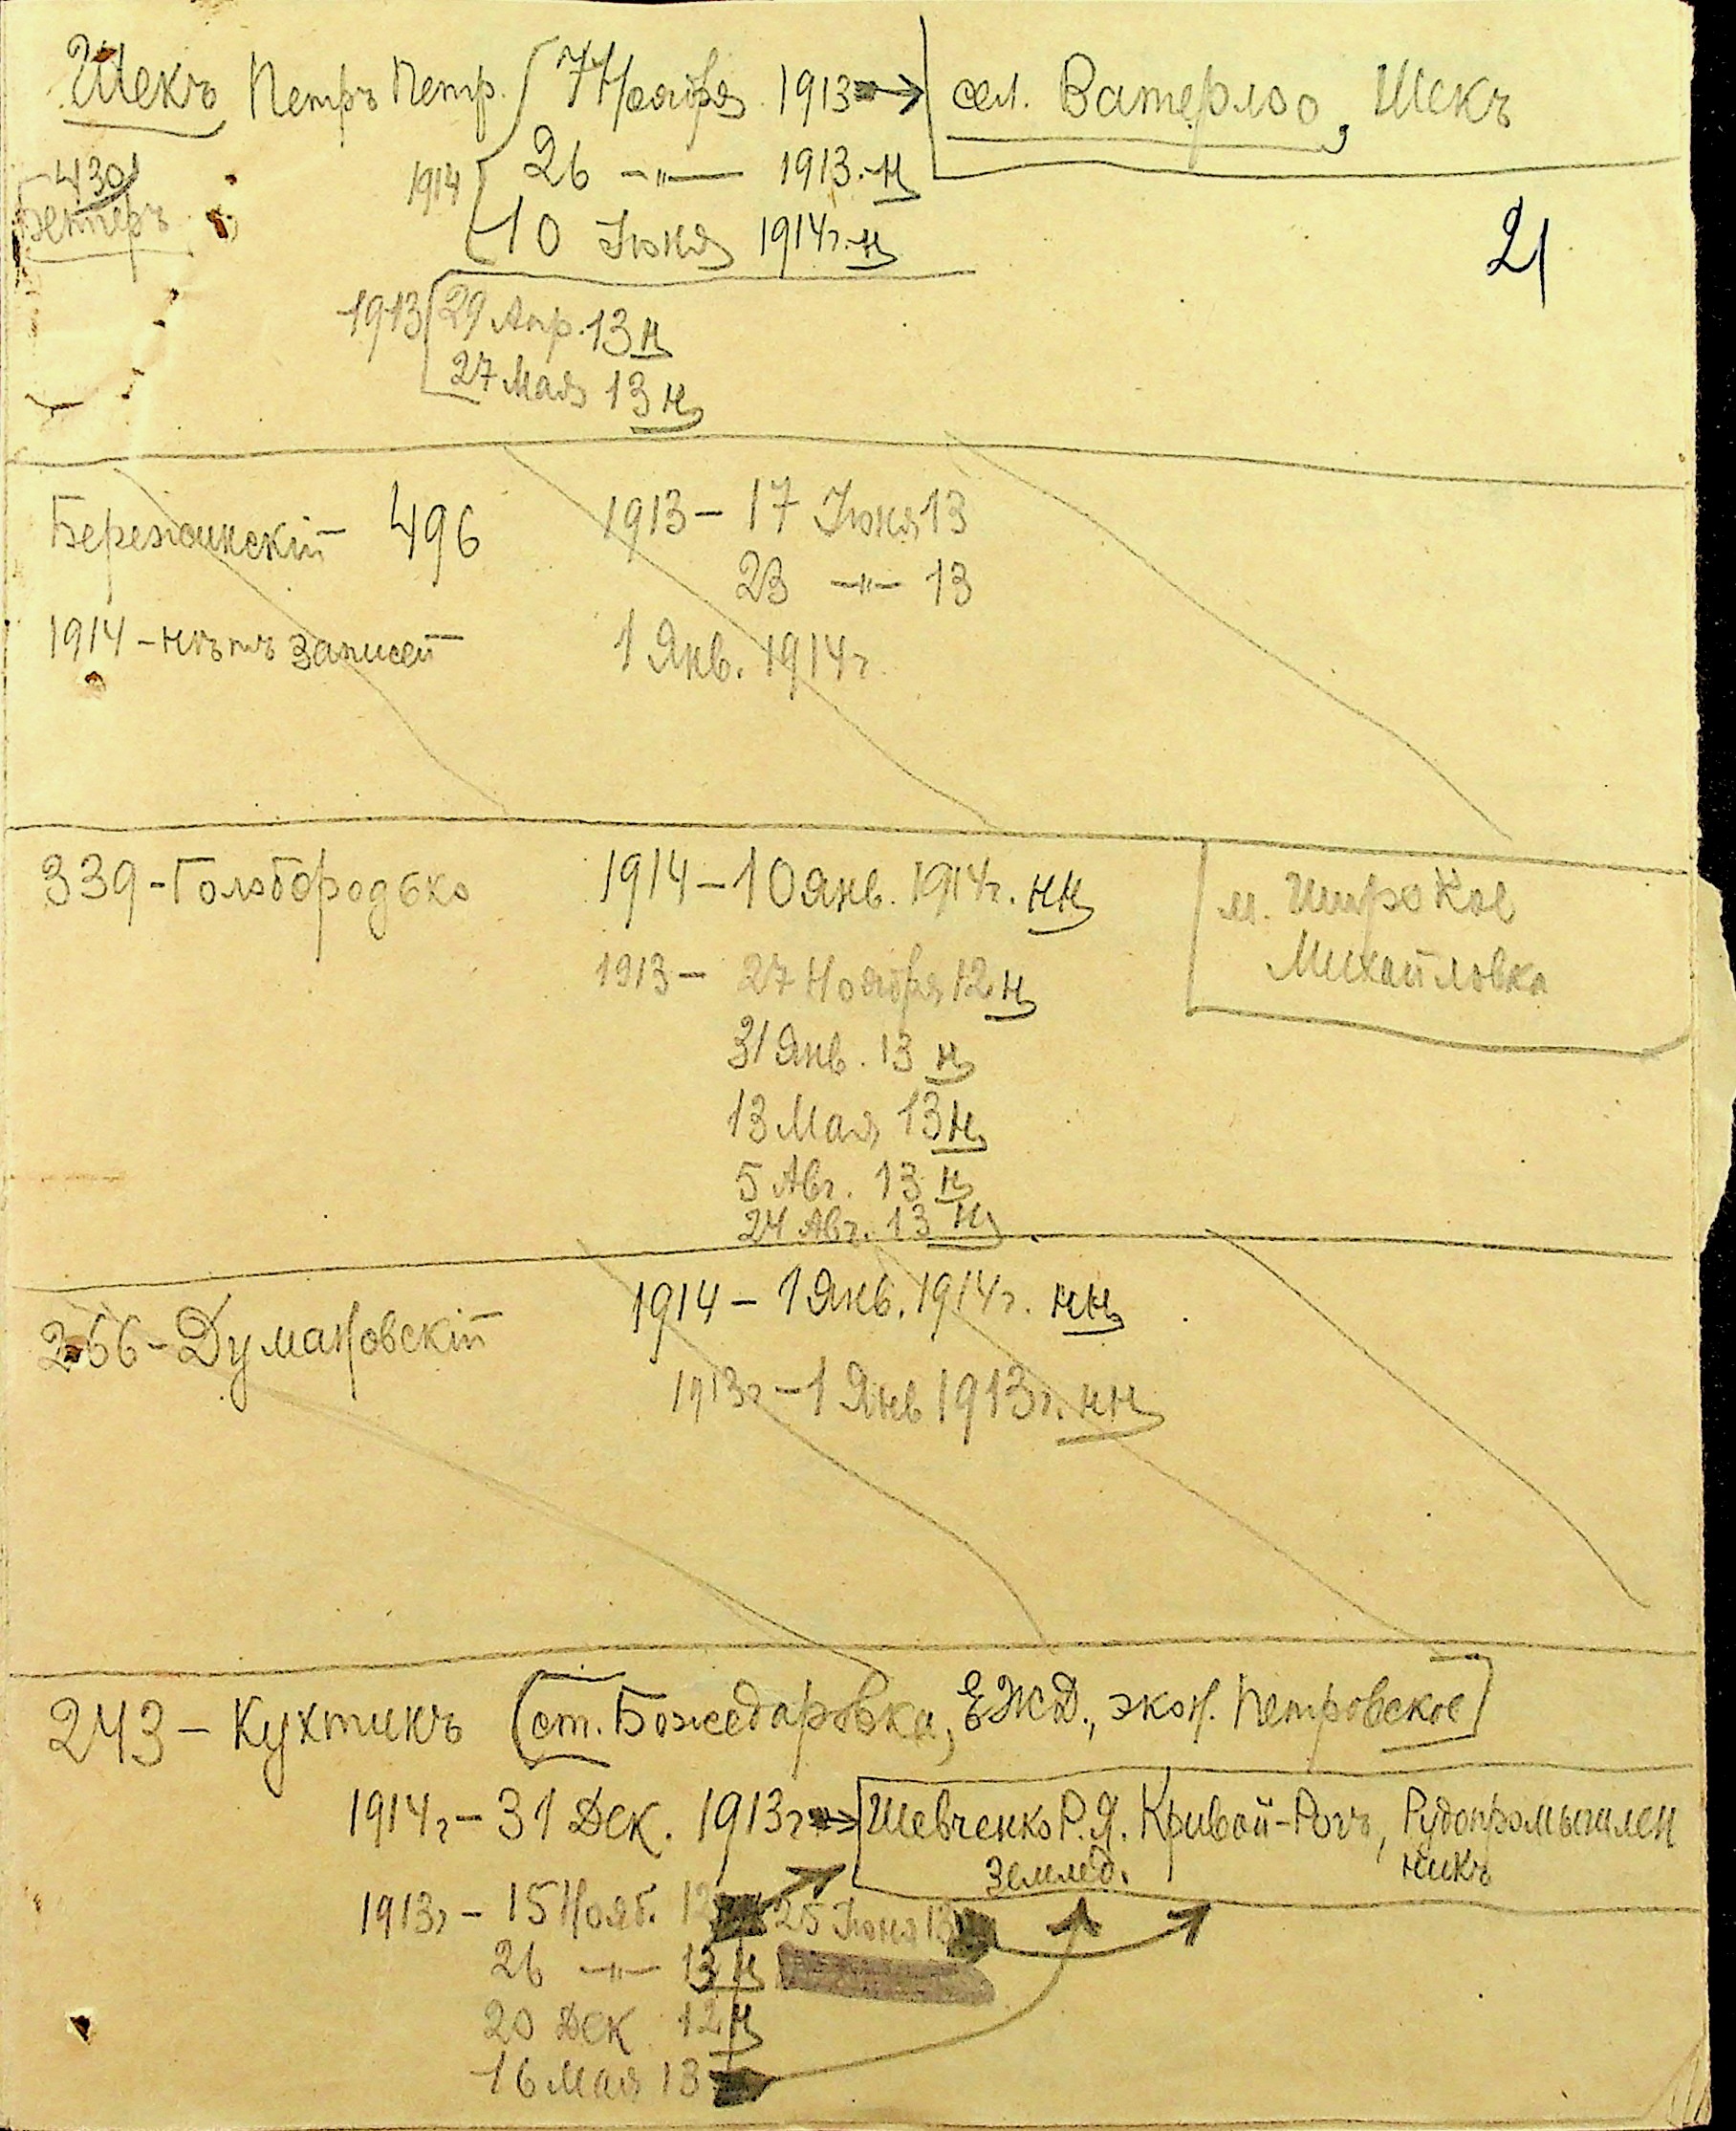 Шекъ Петръ Петр. 7 Ноября 1913 → сел. Ватерлоо, Шекъ
430
1914 26 —"— 1913. н
10 Июня 1914г. н
21
1913 29 Апр. 13 н
27 Мая 13 н
496 1913 – 17 Июня 13
23 —"— 13
1914 – нѣтъ записей 1 Янв. 1914г.
339 – Голобородько 1914 – 10 Янв. 1914г. нн
м. Широкое
1913 – 27 Ноября 12 н
Михайловка
31 Янв. 13 н
13 Мая 13 н
5 Авг. 13 н
24 Авг. 13 н
1914 – 1 Янв. 1914г. нн
256 – Думановскій
1913г – 1 Янв 1913г. нн
243 – Кухтикъ (ст. Божедаровка, ЕЖД., экон. Петровское)
1914г – 31 Дек. 1913г → Шевченко Р.Я. Кривой-Рогъ, Рудопромышлен
землед. никъ
1913г – 15 Нояб. 12 25 Июня 13
26 —"— 13 н
20 Дек 12 н
16 Мая 13